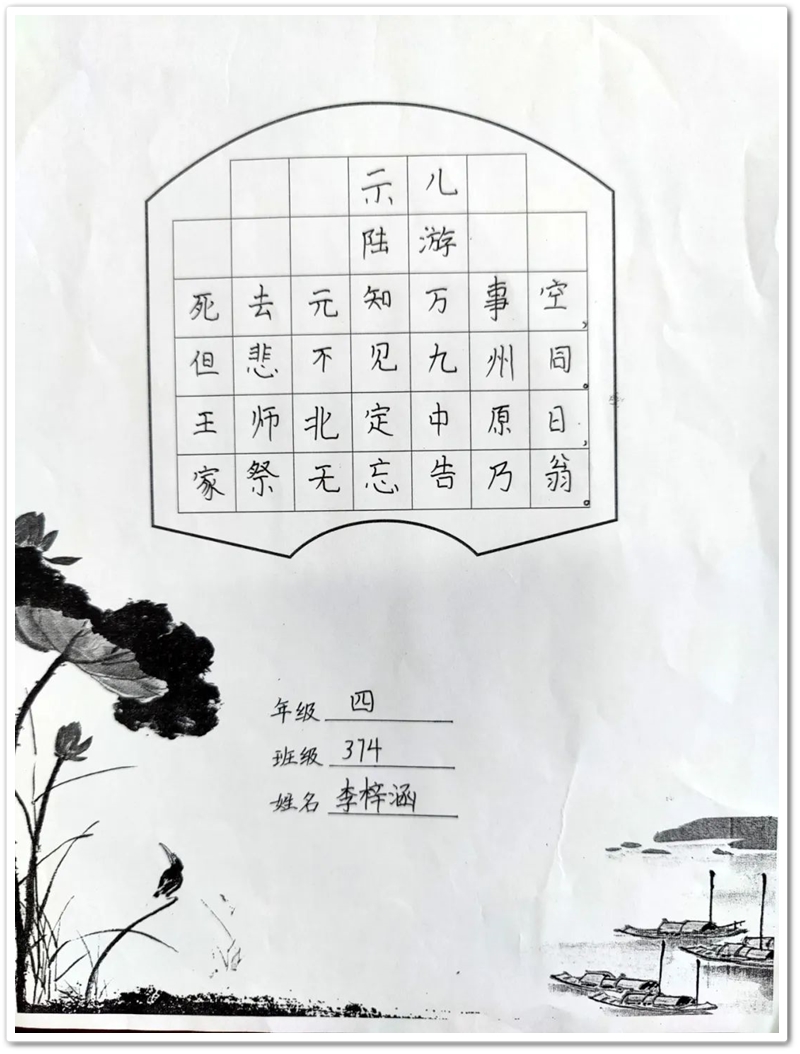 示儿
陆游
死去元知万事空,
但悲不见九州同。
王师北定中原日,
家祭无忘告乃翁。
年级 四
班级 374
姓名 李梓涵